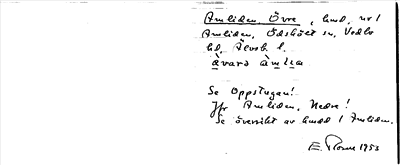 Amliden Övre, hmd, nr 1
Amliden, Ödskölt sn, Vedbo
hd, Älvsb l.
åvarə àmlea
Se Oppstugan!
Jfr Amliden, Nedre!
Se översikt av hmd 1 Amliden.
E. 1953